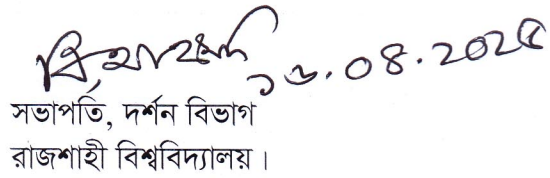 ১৬.০৪.২০২৫
সভাপতি, দর্শন বিভাগ
রাজশাহী বিশ্ববিদ্যালয়।